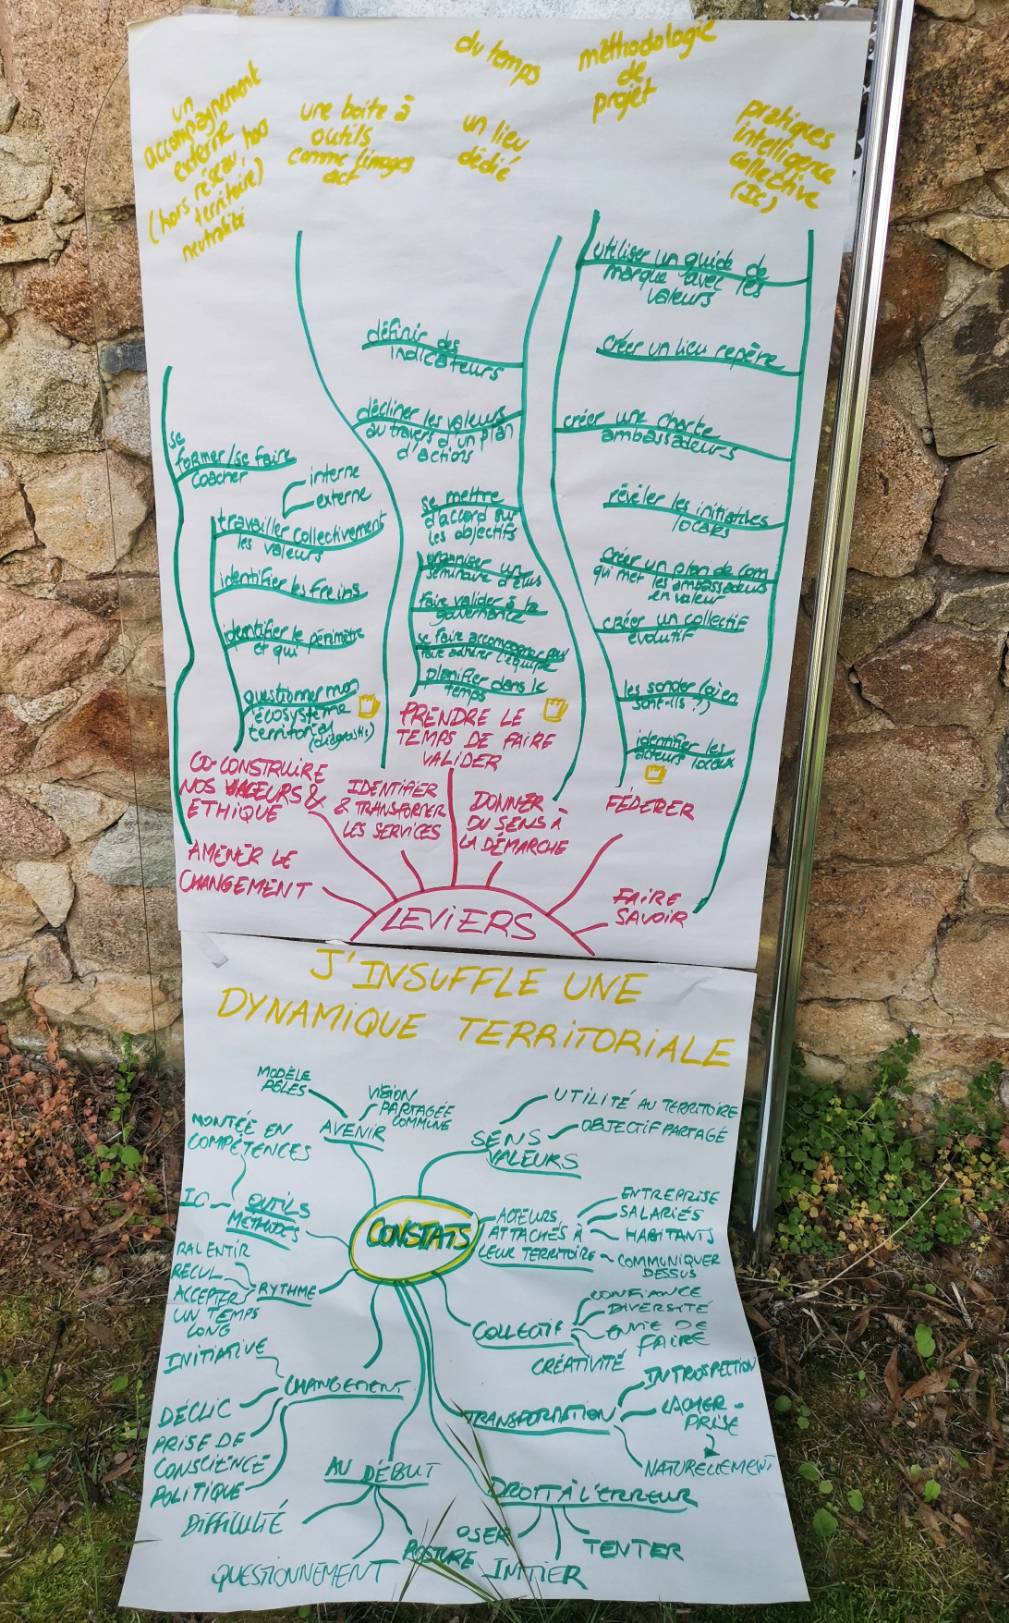 un
accompagnement
externe
(hors réseau, hors
territoire)
neutralité
une boite à
outils
comme limages
act
du temps
un lieu
dédié
méthodologie
de
projet
pratiques
intelligence
collective
(IC)
se
former/se faire
coacher
interne
externe
travailler collectivement
les valeurs
identifier les freins
identifier le périmètre
et qui
questionner mon
écosystème
territorial
(diagnostic)
définir des
indicateurs
décliner les valeurs
au travers d'un plan
d'actions
se mettre
d'accord sur
les objectifs
organiser un
séminaire d'élus
faire valider à la
gouvernance
se faire accompagner pour
faire adhérer l'équipe
planifier dans le
temps
utiliser un guide de
marque avec les
valeurs
créer un lieu repère
créer une charte
ambassadeurs
révéler les initiatives
locales
créer un plan de com
qui met les ambassadeurs
en valeur
créer un collectif
évolutif
les sonder (où en
sont-ils ?)
identifier les
acteurs locaux
AMENER LE
CHANGEMENT
CO-CONSTRUIRE
NOS VALEURS &
ETHIQUE
IDENTIFIER
& TRANSFORMER
LES SERVICES
PRENDRE LE
TEMPS DE FAIRE
VALIDER
DONNER
DU SENS À
LA DÉMARCHE
FÉDERER
FAIRE
SAVOIR
LEVIERS
J'INSUFFLE UNE
DYNAMIQUE TERRITORIALE
MODÈLE
PÔLES
VISION
PARTAGÉE
COMMUNE
AVENIR
UTILITÉ AU TERRITOIRE
OBJECTIF PARTAGÉ
SENS
VALEURS
MONTÉE EN
COMPÉTENCES
IC
OUTILS
METHODES
CONSTATS
ACTEURS
ATTACHÉS À
LEUR TERRITOIRE
ENTREPRISE
SALARIÉS
HABITANTS
COMMUNIQUER
DESSUS
RALENTIR
RECUL
ACCEPTER
UN TEMPS
LONG
RYTHME
COLLECTIF
CONFIANCE
DIVERSITÉ
ENVIE DE
FAIRE
CRÉATIVITÉ
INITIATIVE
CHANGEMENT
DÉCLIC
PRISE DE
CONSCIENCE
POLITIQUE
TRANSFORMATION
INTROSPECTION
LÂCHER-
PRISE
NATURELLEMENT
AU DÉBUT
DIFFICULTÉ
QUESTIONNEMENT
POSTURE
DROIT À L'ERREUR
OSER
INITIER
TENTER